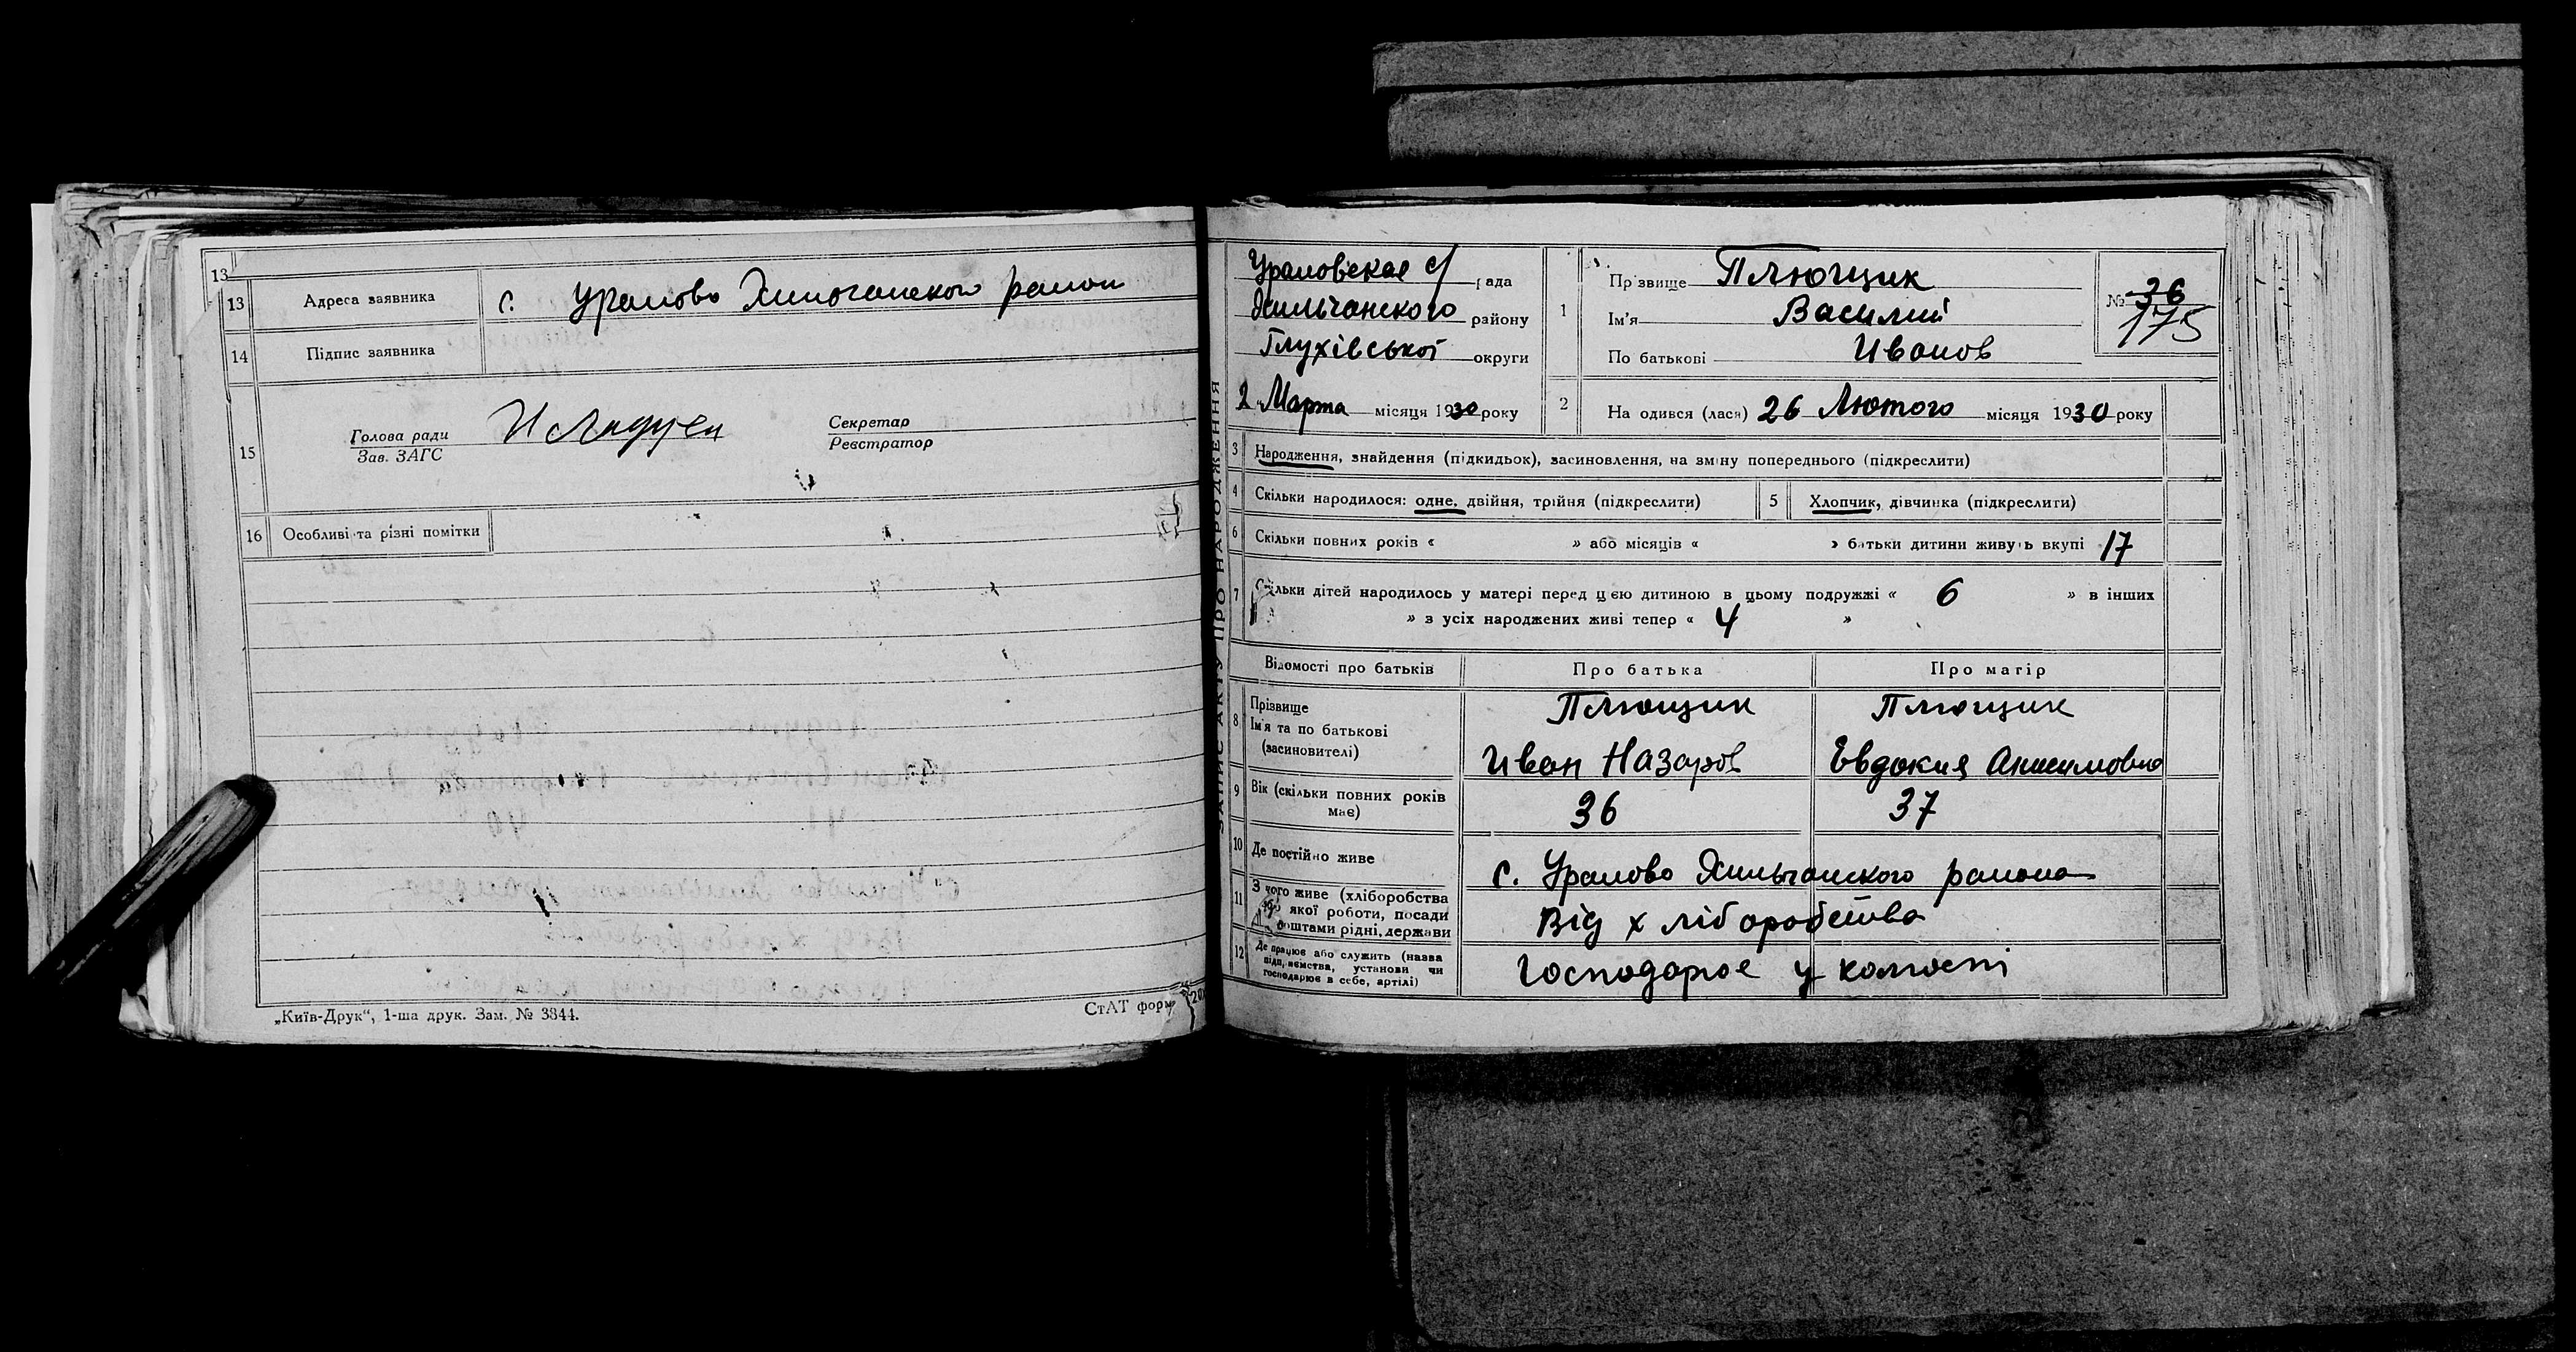 13
13 Адреса заявника с. Уралово Хильчанского район
14 Підпис заявника
15 Голова ради
Зав. ЗАГС
Секретар
Реєстратор
16 Особливі та різні помітки
„Київ-Друк“, 1-ша друк. Зам. № 3844.
СтАТ форм
ЗАПИС АКТУ ПРО НАРОДЖЕННЯ
Ураловская с/ рада
Хильчанского району
Глухівської округи
2 Марта місяця 1930 року
1 Прізвище Плющик
Ім'я Василий
По батькові Иванов
№ 36
175
2 Народився (лася) 26 Лютого місяця 1930 року
3 Народження, знайдення (підкидьок), засиновлення, на зміну попереднього (підкреслити)
4 Скільки народилося: одне, двійня, трійня (підкреслити) 5 Хлопчик, дівчинка (підкреслити)
6 Скільки повних років « » або місяців « » батьки дитини живуть вкупі 17
7 Скільки дітей народилось у матері перед цією дитиною в цьому подружжі « 6 » в інших
» з усіх народжених живі тепер « 4 »
Відомості про батьків Про батька Про матір
8 Прізвище Плющик Плющик
Ім'я та по батькові
(засиновителі) Иван Назаров Евдокия Анисимовна
9 Вік (скільки повних років має) 36 37
10 Де постійно живе с. Уралово Хильчанского района
11 З чого живе (хліборобства
або якої роботи, посади
коштами рідні, держави Від хліборобства
12 Де працює або служить (назва
підприємства, установи чи
господарює в себе, артілі) Господарює у